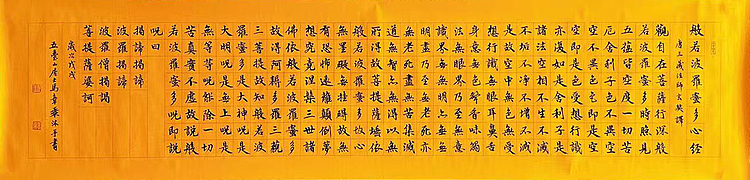 般若波羅蜜多心經
唐三藏法師玄奘譯
觀自在菩薩行深般
若波羅蜜多時照見
五蘊皆空度一切苦
厄舍利子色不異空
空不異色色即是空
空即是色受想行識
亦復如是舍利子是
諸法空相不生不滅
不垢不淨不增不減
是故空中無色無受
想行識無眼耳鼻舌
身意無色聲香味觸
法無眼界乃至無意
識界無無明亦無無
明盡乃至無老死亦
無老死盡無苦集滅
道無智亦無得以無
所得故菩提薩埵依
般若波羅蜜多故心
無罣礙無罣礙故無
有恐怖遠離顛倒夢
想究竟涅槃三世諸
佛依般若波羅蜜多
故得阿耨多羅三藐
三菩提故知般若波
羅蜜多是大神呪是
大明呪是無上呪是
無等等呪能除一切
苦真實不虛故說般
若波羅蜜多呪即說
呪曰
揭諦揭諦
波羅揭諦
波羅僧揭諦
菩提薩婆訶
歲次戊戌
居士馬章乘沐手書